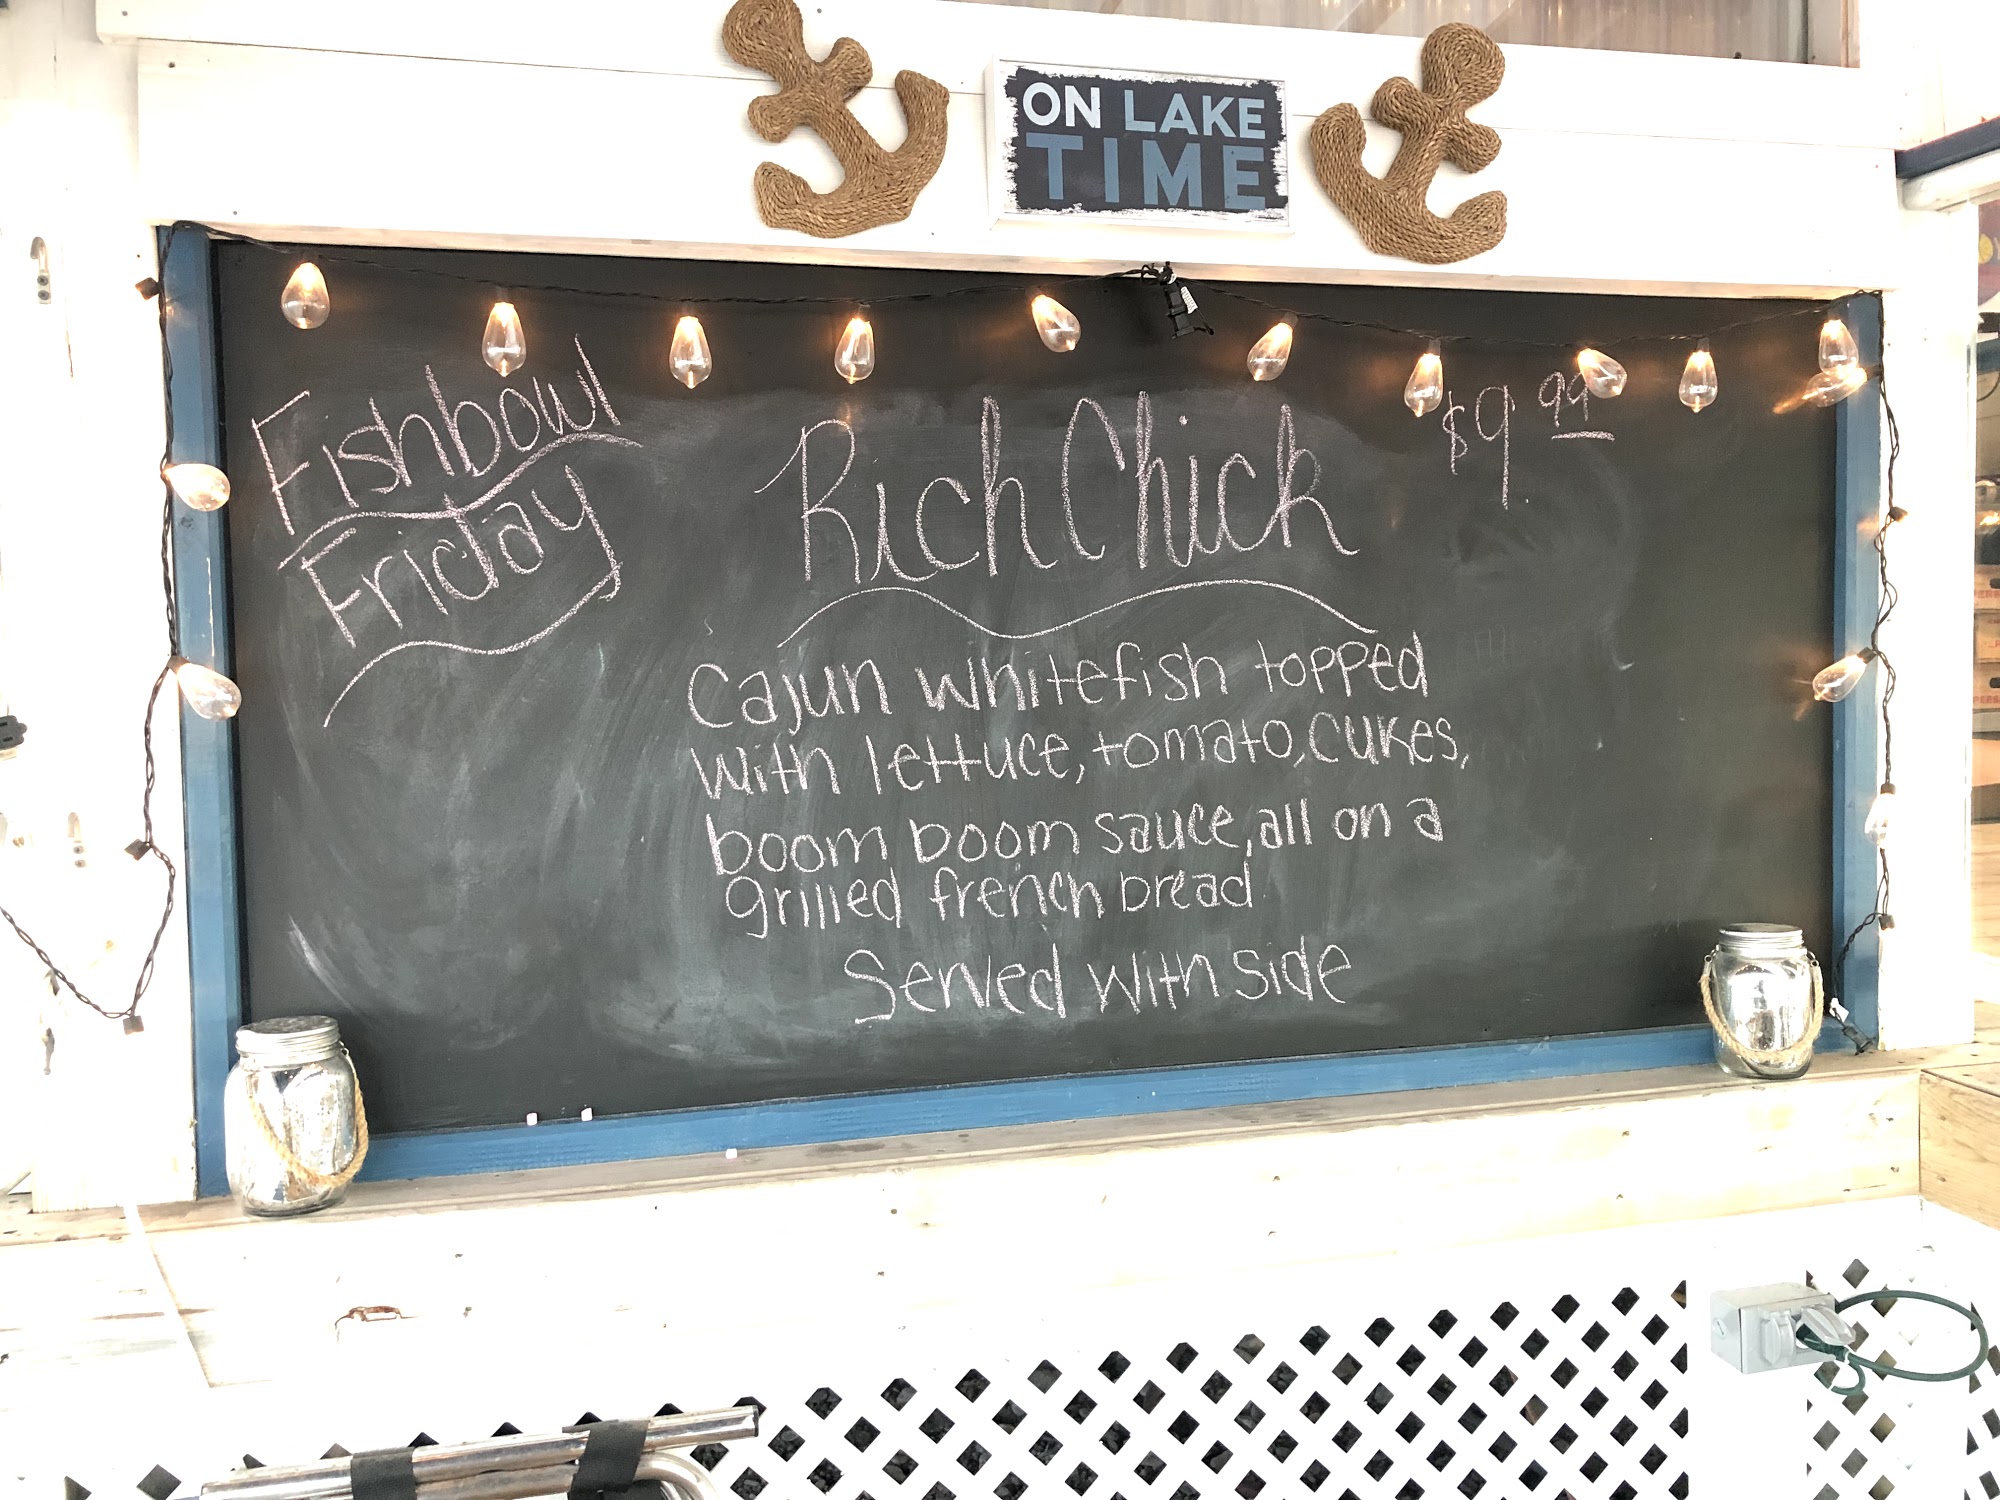 ON LAKE
TIME
Fishbowl
Friday
Rich Chick
$9 99
Cajun whitefish topped
with lettuce, tomato, cukes,
boom boom sauce, all on a
grilled french bread
Served with side